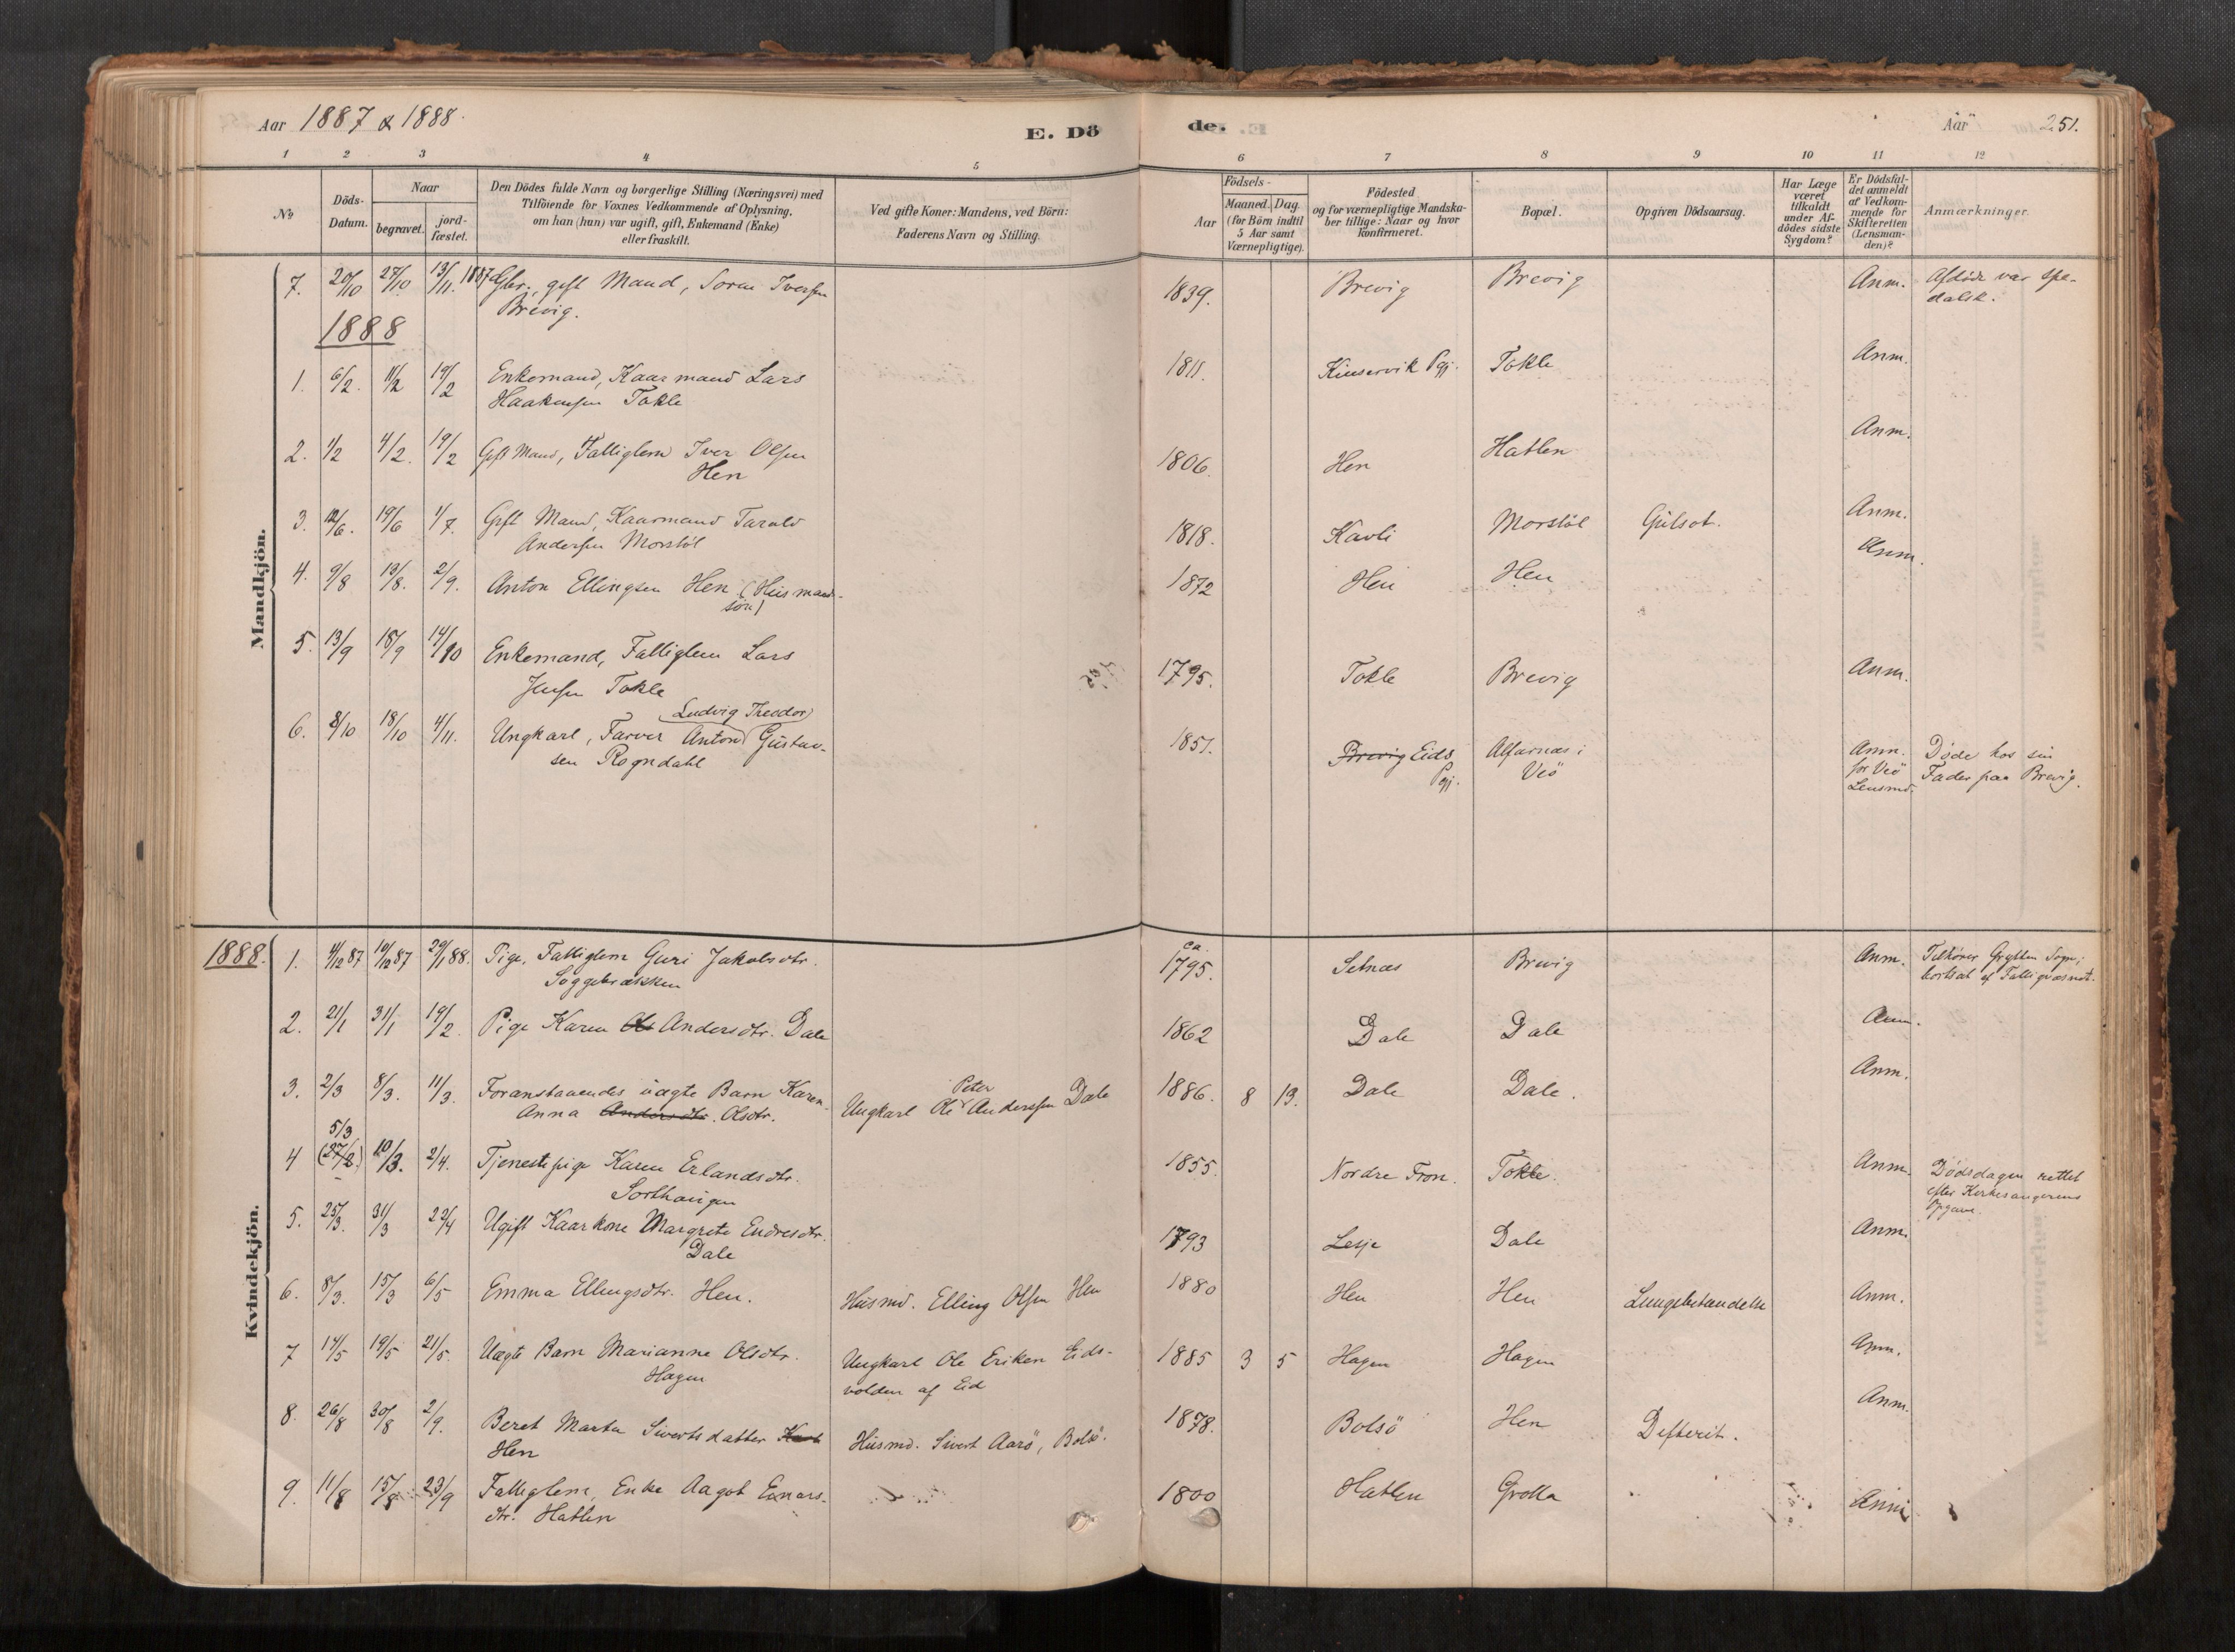 Aar 1887 & 1888.
E. Dö de.
Aar 251.
1 2 3 4 5 6 7 8 9 10 11 12
№
Döds-Datum.
Naar
begravet.
jord-fæstet.
Den Dödes fulde Navn og borgerlige Stilling (Næringsvei) med
Tilföiende for Voxnes Vedkommende af Oplysning,
om han (hun) var ugift, gift, Enkemand (Enke)
eller fraskilt.
Ved gifte Koner: Mandens, ved Börn:
Faderens Navn og Stilling.
Födsels-
Aar
Maaned. Dag.
(for Börn indtil
5 Aar samt
Værnepligtige).
Födested
og for værnepligtige Mandska-
ber tillige: Naar og hvor
konfirmeret.
Bopæl.
Opgiven Dödsaarsag.
Har Læge
været
tilkaldt
under Af-
dödes sidste
Sygdom?
Er Dödsfal-
det anmeldt
af Vedkom-
mende for
Skifteretten
(Lensman-
den)?
Anmærkninger.
Mandkjön.
7. 20/10 27/10 13/11. 1887 Gbr., gift Mand, Soren Iversen 1839. Brevig Brevig Anm. Afdöde var spe-
Brevig. dalsk.
1888
1. 6/2. 11/2 19/2 Enkemand, Kaarmand Lars 1811. Kinservik Pgj. Tokle Anm.
Haakensen Tokle
2. 1/2 4/2. 19/2 Gift Mand, Fattiglem Iver Olsen 1806. Hen Hatlen Anm.
Hen
3. 12/6. 19/6 1/7. Gift Mand, Kaarmand Tarald 1818. Kavli Morstöl Gulsot. Anm.
Andersen Morstöl
4. 9/8 13/8. 2/9. Anton Ellingsen Hen (Husmands- 1872 Hen Hen Anm.
sön)
5. 13/9 18/9 14/10 Enkemand, Fattiglem Lars 1795. Tokle Brevig Anm.
Jensen Tokle
Ludvig Theodor
6. 8/10 18/10 4/11. Ungkarl, Farver Anton Gustav- 1851. Brevig Eids Alfarnæs i Anm. Döde hos sin
sen Rogndahl Pgj. Veö for Veö Fader paa Brevig.
Lensmd.
Kvindekjön.
1888. 1. 4/12 87 10/12 87 29/1 88. Pige, Fattiglem Guri Jakobsdtr. ca 1795. Setnæs Brevig Anm. Tilhörer Grytten Sogn;
Soggebrækken bortsat af Fattigvæsnet.
2. 21/1 31/1 19/2. Pige Karen Ols Andersdtr. Dale 1862 Dale Dale Anm.
3. 2/3 8/3. 11/3. Foranstaaendes uægte Barn Karen Ungkarl Ole Peter Anderssen Dale 1886. 8 13. Dale Dale. Anm.
Anna Andersdtr. Olsdtr.
5/3
4 (27/2) 10/3. 2/4. Tjenestepige Karen Erlandsdtr. 1855. Nordre Fron. Tokle. Anm. Dödsdagen rettet
Sorthaugen efter Kirkesangerens
Opgave.
5. 25/3. 31/3 22/4 Ugift Kaarkone Margrete Endresdtr. 1793 Lesje Dale Anm.
Dale
6. 8/3. 15/3 6/5 Emma Ellingsdtr. Hen. Husmd. Elling Olsen Hen 1880 Hen Hen Lungebetændelse Anm.
7 14/5 19/5 21/5. Uægte Barn Marianne Olsdtr. Ungkarl Ole Eriksen Eids- 1885 3 5 Hagen Hagen Anm.
Hagen volden af Eid
8. 26/8 30/8 2/9. Beret Marta Sivertsdatter Husmd. Sivert Aarö, Bolsö. 1878. Bolsö Hen Difterit. Anm.
Hen
9. 11/8 15/8 23/9 Fattiglem, Enke Aagot Einars- 1800 Hatlen Grotta Anm.
dtr. Hatlen